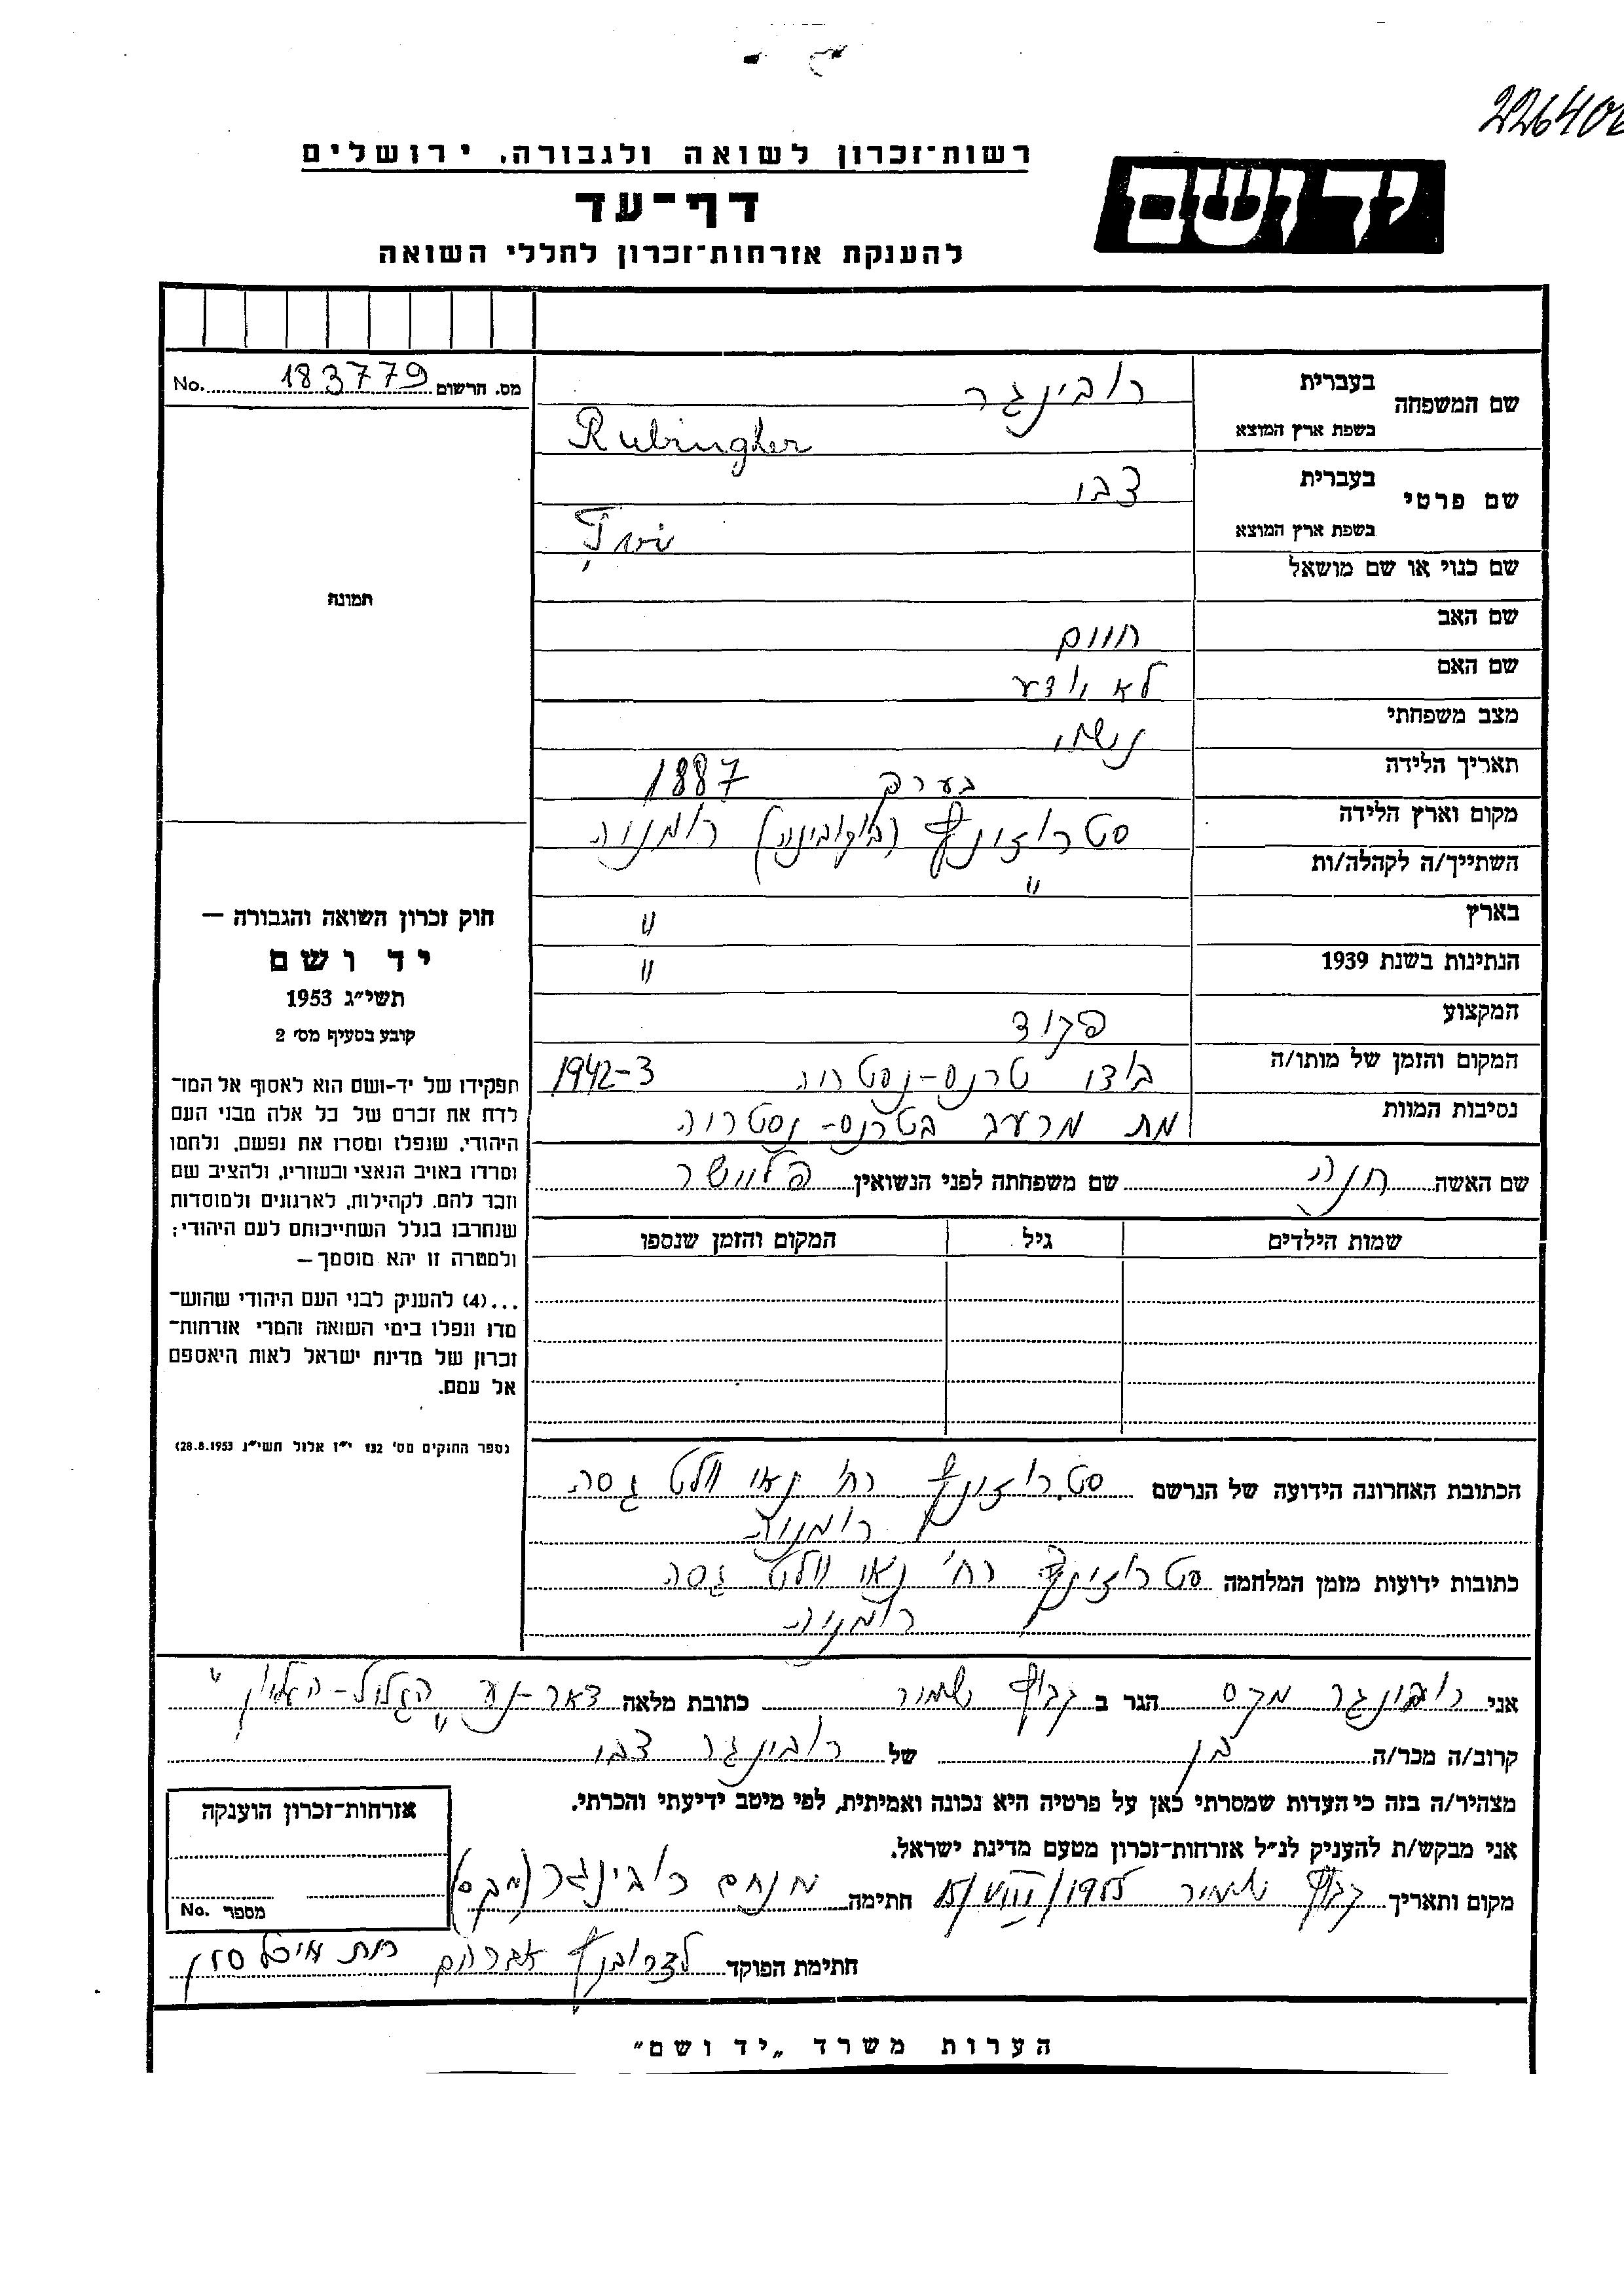 226406
רשות־זכרון לשואה ולגבורה, ירושלים
יד ושם
דף־עד
להענקת אזרחות־זכרון לחללי השואה
No. 183779 מס. הרשום
שם המשפחה
בעברית
רובינגר
בשפת ארץ המוצא
Rubingher
שם פרטי
בעברית
צבי
בשפת ארץ המוצא
שם כנוי או שם מושאל
תמונה
שם האב
חיים
שם האם
לא יודע
מצב משפחתי
נשוי
תאריך הלידה
בערך 1887
מקום וארץ הלידה
סטרוזינץ (בוקובינה) רומניה
השתייך/ה לקהלה/ות
"
בארץ
"
הנתינות בשנת 1939
"
המקצוע
פקיד
המקום והזמן של מותו/ה
טרנס-נסטריה 1942-3
נסיבות המוות
מת מרעב בטרנס-נסטריה
שם האשה חנה שם משפחתה לפני הנשואין פליישר
שמות הילדים גיל המקום והזמן שנספו
חוק זכרון השואה והגבורה —
יד ושם
תשי״ג 1953
קובע בסעיף מס׳ 2
תפקידו של יד-ושם הוא לאסוף אל המו־
לדת את זכרם של כל אלה מבני העם
היהודי, שנפלו ומסרו את נפשם, נלחמו
ומרדו באויב הנאצי ובעוזריו, ולהציב שם
וזכר להם, לקהילות, לארגונים ולמוסדות
שנחרבו בגלל השתייכותם לעם היהודי;
ולמטרה זו יהא מוסמך —
...(4) להעניק לבני העם היהודי שהוש־
מדו ונפלו בימי השואה והמרי אזרחות־
זכרון של מדינת ישראל לאות היאספם
אל עמם.
(ספר החוקים מס׳ 132 י״ז אלול תשי״ג 28.8.1953)
הכתובת האחרונה הידועה של הנרשם סטרוזינץ רח׳ נאו וולט גסה
רומניה
כתובות ידועות מזמן המלחמה סטרוזינץ רח׳ נאו וולט גסה
רומניה
אני רובינגר מקס הגר ב קבוץ שמיר כתובת מלאה דאר-נע "הגליל-העליון"
קרוב/ה מכר/ה בן של רובינגר צבי
מצהיר/ה בזה כי העדות שמסרתי כאן על פרטיה היא נכונה ואמיתית, לפי מיטב ידיעתי והכרתי.
אני מבקש/ת להעניק לנ״ל אזרחות־זכרון מטעם מדינת ישראל.
מקום ותאריך קבוץ שמיר 15/VIII/1955 חתימה מנחם רובינגר (מקס)
אזרחות־זכרון הוענקה
מספר No.
חתימת הפוקד אברהם
הערות משרד „יד ושם״